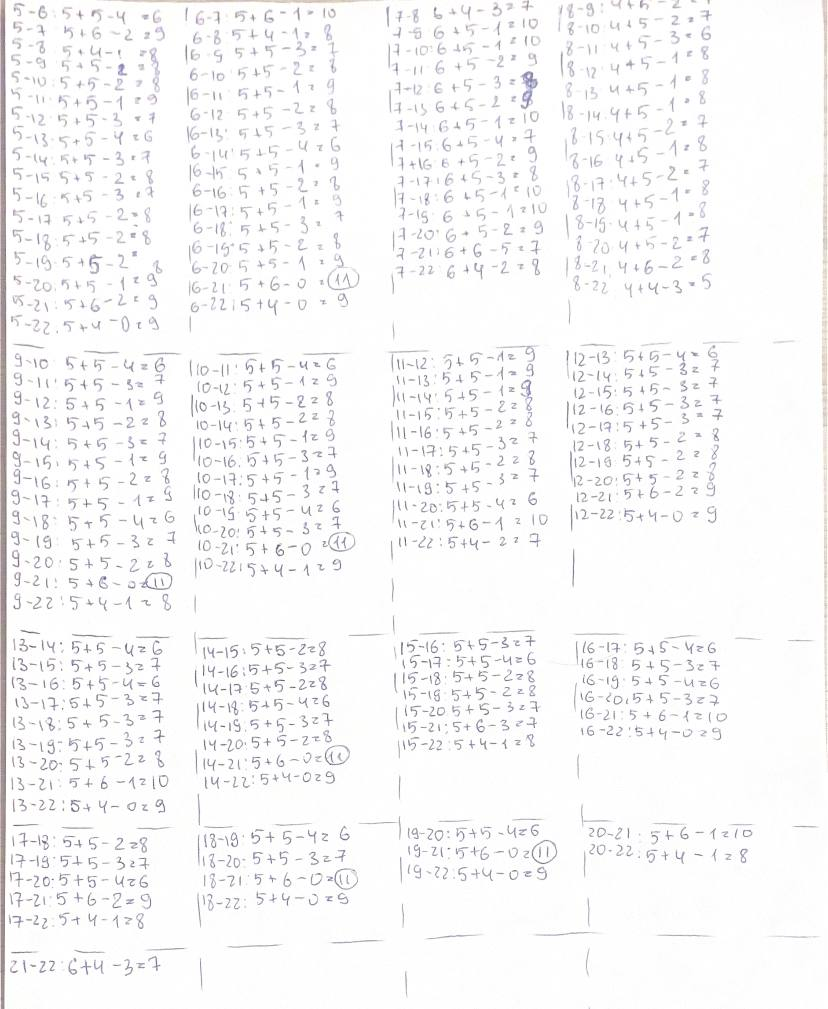 5-6: 5+5-4=6
5-7 5+6-2=9
5-8 5+4-1=8
5-9 5+5-2=8
5-10: 5+5-2=8
5-11: 5+5-1=9
5-12: 5+5-3=7
5-13: 5+5-4=6
5-14: 5+5-3=7
5-15 5+5-2=8
5-16: 5+5-3=7
5-17 5+5-2=8
5-18: 5+5-2=8
5-19: 5+5-2=8
5-20: 5+5-1=9
5-21: 5+6-2=9
5-22: 5+4-0=9
6-7: 5+6-1=10
6-8: 5+4-1=8
6-9 5+5-3=7
6-10 5+5-2=8
6-11 5+5-1=9
6-12 5+5-2=8
6-13: 5+5-3=7
6-14: 5+5-4=6
6-15 5+5-1=9
6-16: 5+5-2=8
6-17: 5+5-1=9
6-18: 5+5-3=7
6-19: 5+5-2=8
6-20: 5+5-1=9
6-21: 5+6-0=11
6-22: 5+4-0=9
7-8 6+4-3=7
7-9 6+5-1=10
7-10: 6+5-1=10
7-11 6+5-2=9
7-12: 6+5-3=8
7-13 6+5-2=9
7-14 6+5-1=10
7-15: 6+5-4=7
7-16: 6+5-2=9
7-17: 6+5-3=8
7-18: 6+5-1=10
7-19: 6+5-1=10
7-20: 6+5-2=9
7-21: 6+6-5=7
7-22: 6+4-2=8
8-9: 4+5-2=7
8-10: 4+5-2=7
8-11: 4+5-3=6
8-12: 4+5-1=8
8-13 4+5-1=8
8-14: 4+5-1=8
8-15: 4+5-2=7
8-16 4+5-1=8
8-17: 4+5-2=7
8-18 4+5-1=8
8-19: 4+5-1=8
8-20 4+5-2=7
8-21, 4+6-2=8
8-22 4+4-3=5
9-10: 5+5-4=6
9-11: 5+5-3=7
9-12: 5+5-1=9
9-13: 5+5-2=8
9-14: 5+5-3=7
9-15: 5+5-1=9
9-16: 5+5-2=8
9-17: 5+5-1=9
9-18: 5+5-4=6
9-19: 5+5-3=7
9-20: 5+5-2=8
9-21: 5+6-0=11
9-22: 5+4-1=8
10-11: 5+5-4=6
10-12: 5+5-1=9
10-13: 5+5-2=8
10-14: 5+5-2=8
10-15: 5+5-1=9
10-16: 5+5-3=7
10-17: 5+5-1=9
10-18: 5+5-3=7
10-19 5+5-4=6
10-20: 5+5-3=7
10-21: 5+6-0=11
10-22: 5+4-1=9
11-12: 5+5-1=9
11-13: 5+5-1=9
11-14: 5+5-1=9
11-15: 5+5-2=8
11-16: 5+5-2=8
11-17: 5+5-3=7
11-18: 5+5-2=8
11-19: 5+5-3=7
11-20: 5+5-4=6
11-21: 5+6-1=10
11-22: 5+4-2=7
12-13: 5+5-4=6
12-14: 5+5-3=7
12-15: 5+5-3=7
12-16: 5+5-3=7
12-17: 5+5-3=7
12-18: 5+5-2=8
12-19: 5+5-2=8
12-20: 5+5-2=8
12-21: 5+6-2=9
12-22: 5+4-0=9
13-14: 5+5-4=6
13-15: 5+5-3=7
13-16: 5+5-4=6
13-17: 5+5-3=7
13-18: 5+5-3=7
13-19: 5+5-3=7
13-20: 5+5-2=8
13-21: 5+6-1=10
13-22: 5+4-0=9
14-15: 5+5-2=8
14-16: 5+5-3=7
14-17: 5+5-2=8
14-18: 5+5-4=6
14-19: 5+5-3=7
14-20: 5+5-2=8
14-21: 5+6-0=11
14-22: 5+4-0=9
15-16: 5+5-3=7
15-17: 5+5-4=6
15-18: 5+5-2=8
15-19 5+5-2=8
15-20 5+5-3=7
15-21: 5+6-3=7
15-22: 5+4-1=8
16-17: 5+5-4=6
16-18: 5+5-3=7
16-19: 5+5-4=6
16-20, 5+5-3=7
16-21: 5+6-1=10
16-22: 5+4-0=9
17-18: 5+5-2=8
17-19: 5+5-3=7
17-20: 5+5-4=6
17-21: 5+6-2=9
17-22: 5+4-1=8
18-19: 5+5-4=6
18-20: 5+5-3=7
18-21: 5+6-0=11
18-22: 5+4-0=9
19-20: 5+5-4=6
19-21: 5+6-0=11
19-22: 5+4-0=9
20-21: 5+6-1=10
20-22: 5+4-1=8
21-22: 6+4-3=7